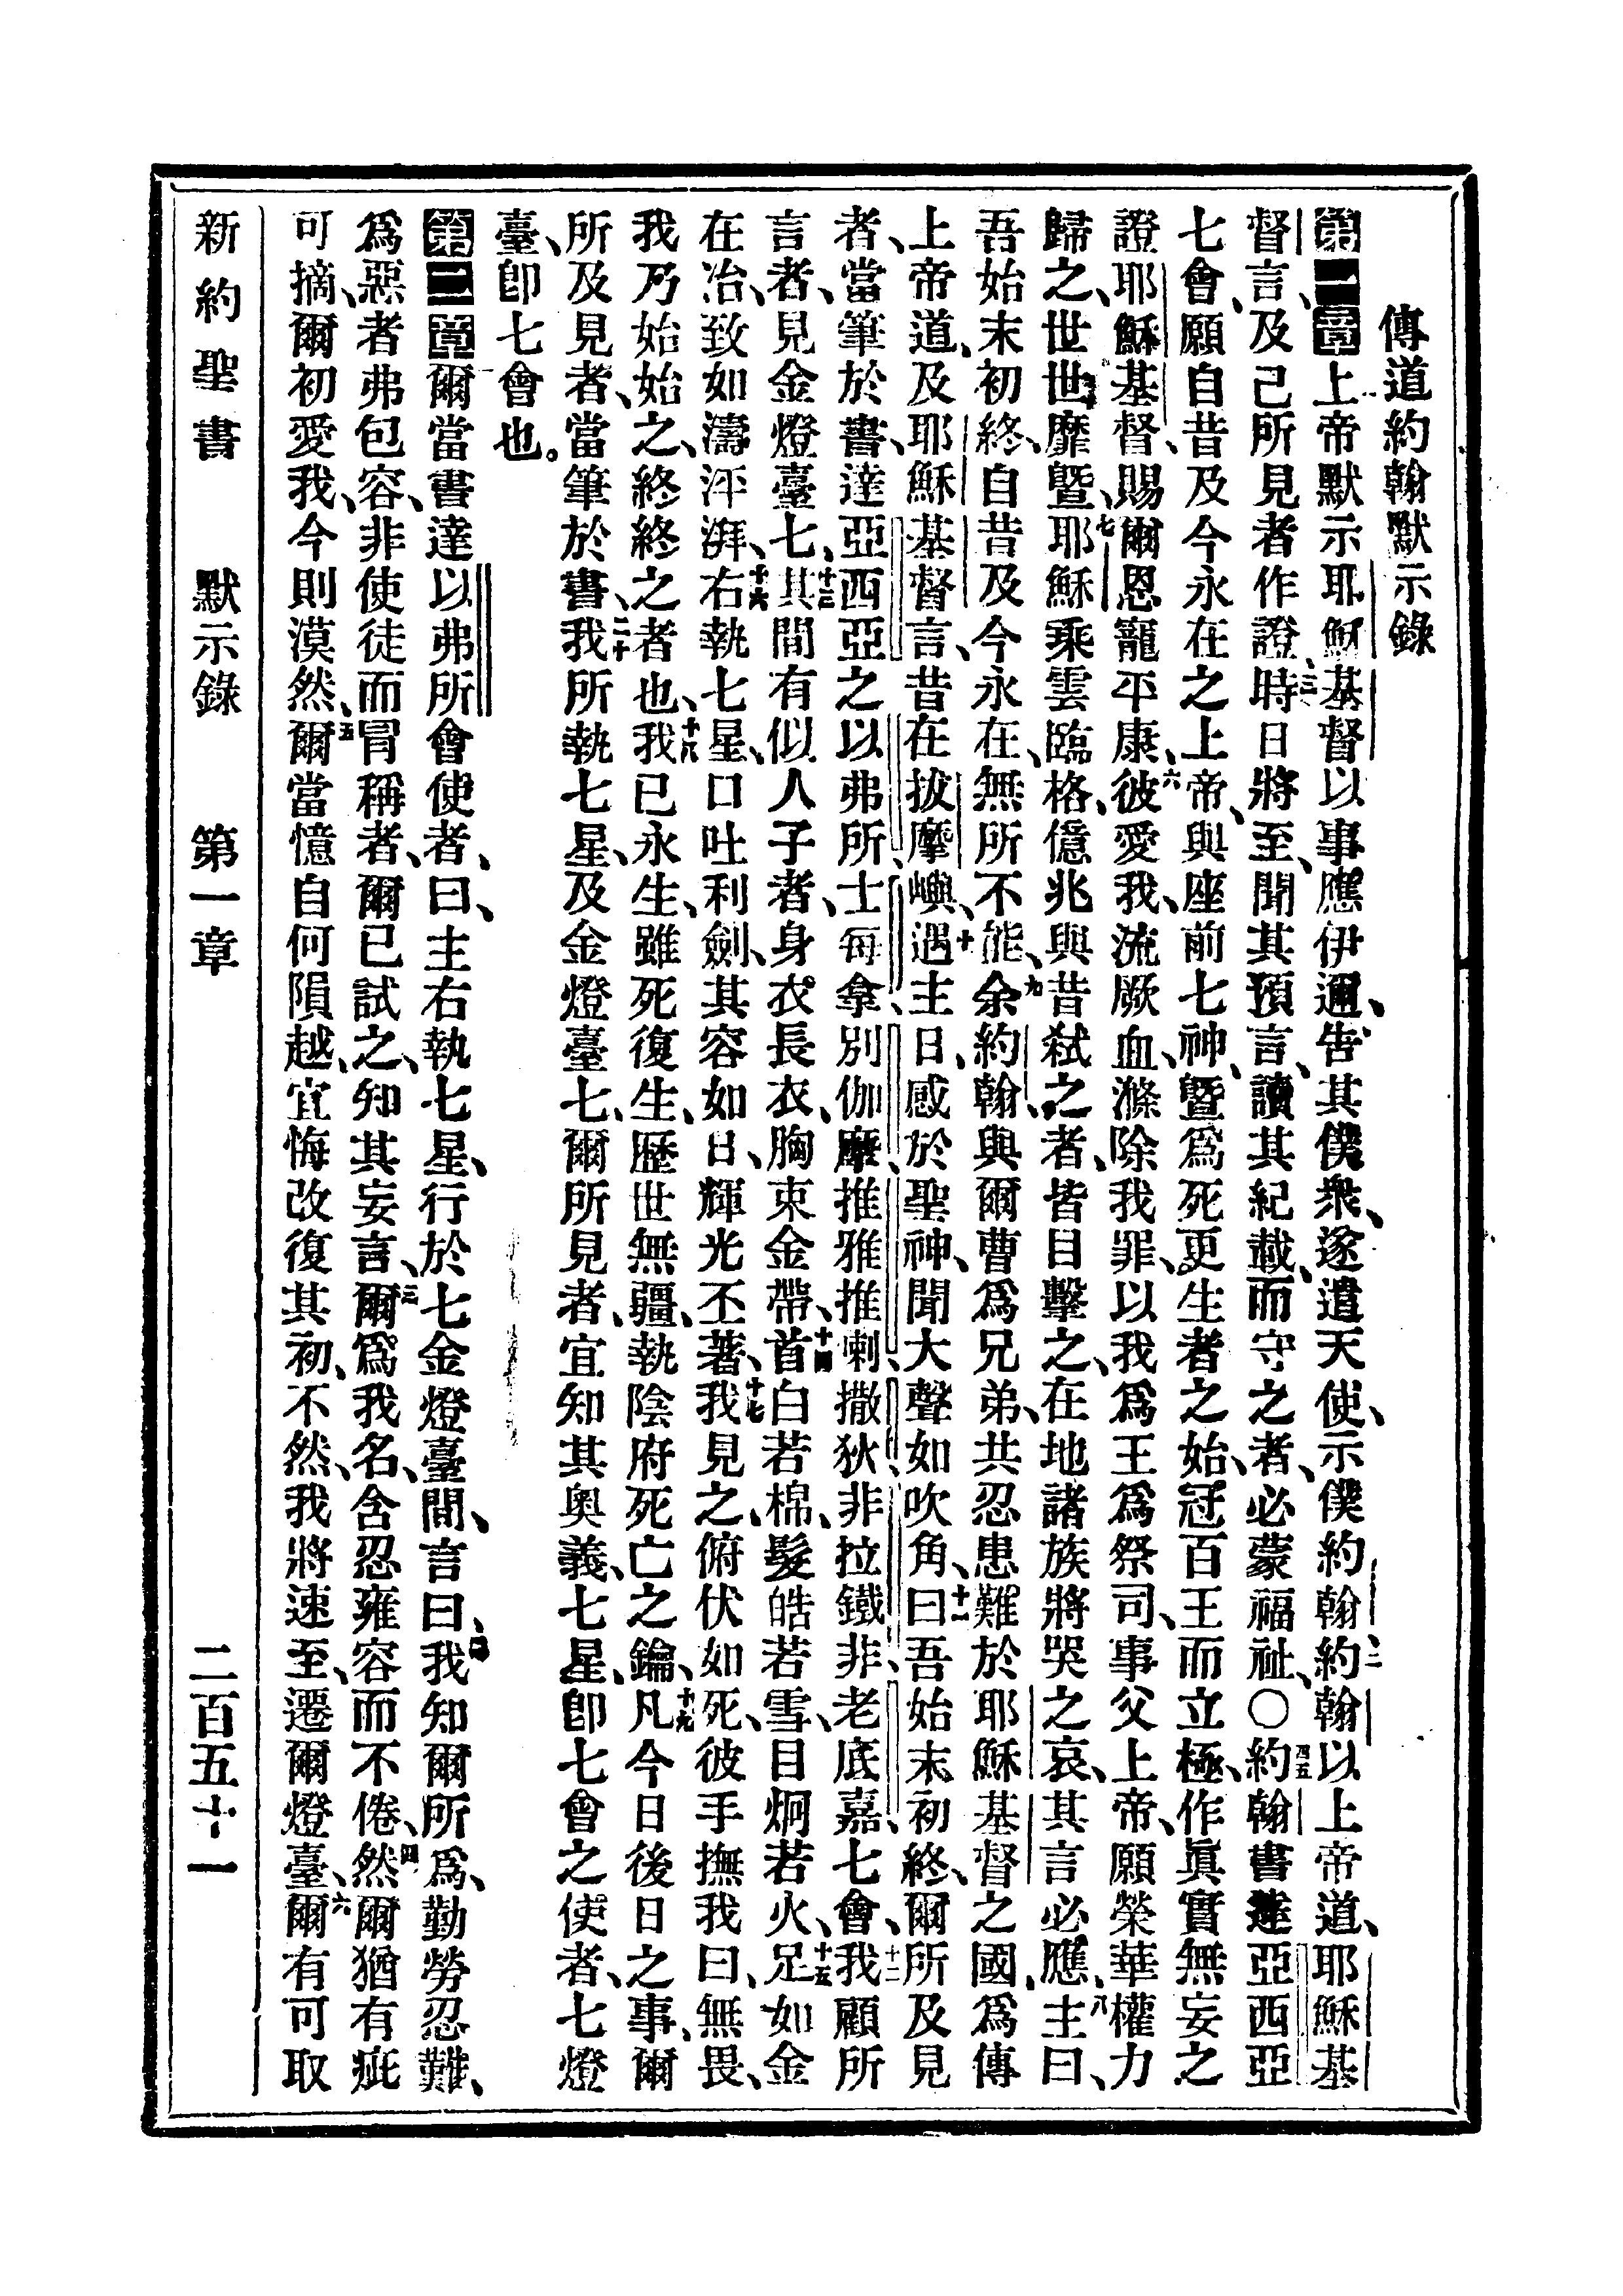 傳道約翰默示錄
第一章上帝默示耶穌基督以事應伊邇、告其僕衆、遂遣天使、示僕約翰、二約翰以上帝道、耶穌基
督言、及己所見者作證、三時日將至、聞其預言、讀其紀載、而守之者、必蒙福祉、〇四五約翰書達亞西亞
七會、願自昔及今永在之上帝、與座前七神、曁爲死更生者之始、冠百王而立極、作眞實無妄之
證耶穌基督、賜爾恩寵平康、六彼愛我、流厥血、滌除我罪、以我爲王爲祭司、事父上帝、願榮華權力
歸之、世世靡曁、七耶穌乘雲臨格、億兆與昔弑之者、皆目擊之、在地諸族將哭之哀、其言必應、八主曰、
吾始末初終、自昔及今永在、無所不能、九余約翰、與爾曹爲兄弟、共忍患難於耶穌基督之國、爲傳
上帝道、及耶穌基督言、昔在拔摩嶼、十遇主日、感於聖神、聞大聲如吹角、曰、十一吾始末初終、爾所及見
者、當筆於書、達亞西亞之以弗所、士每拿、別伽摩、推雅推喇、撒狄、非拉鐵非、老底嘉、七會、十二我顧所
言者、見金燈臺七、十三其間有似人子者、身衣長衣、胸束金帶、十四首白若棉、髮皓若雪、目炯若火、十五足如金
在冶、致如濤泙湃、十六右執七星、口吐利劍、其容如日、輝光丕著、十七我見之、俯伏如死、彼手撫我曰、無畏、
我乃始始之、終終之者也、十八我已永生、雖死復生、歷世無疆、執陰府死亡之鑰、十九凡今日後日之事、爾
所及見者、當筆於書、二十我所執七星、及金燈臺七、爾所見者、宜知其奧義、七星、卽七會之使者、七燈
臺、卽七會也。
第二章爾當書達以弗所會使者、曰、主右執七星、行於七金燈臺間、言曰、二我知爾所爲、勤勞忍難、
爲惡者弗包容、非使徒而冒稱者、爾已試之、知其妄言、三爾爲我名、含忍雍容而不倦、四然爾猶有疵
可摘、爾初愛我、今則漠然、五爾當憶自何隕越、宜悔改復其初、不然、我將速至、遷爾燈臺、六爾有可取
新約聖書 默示錄 第一章 二百五十一